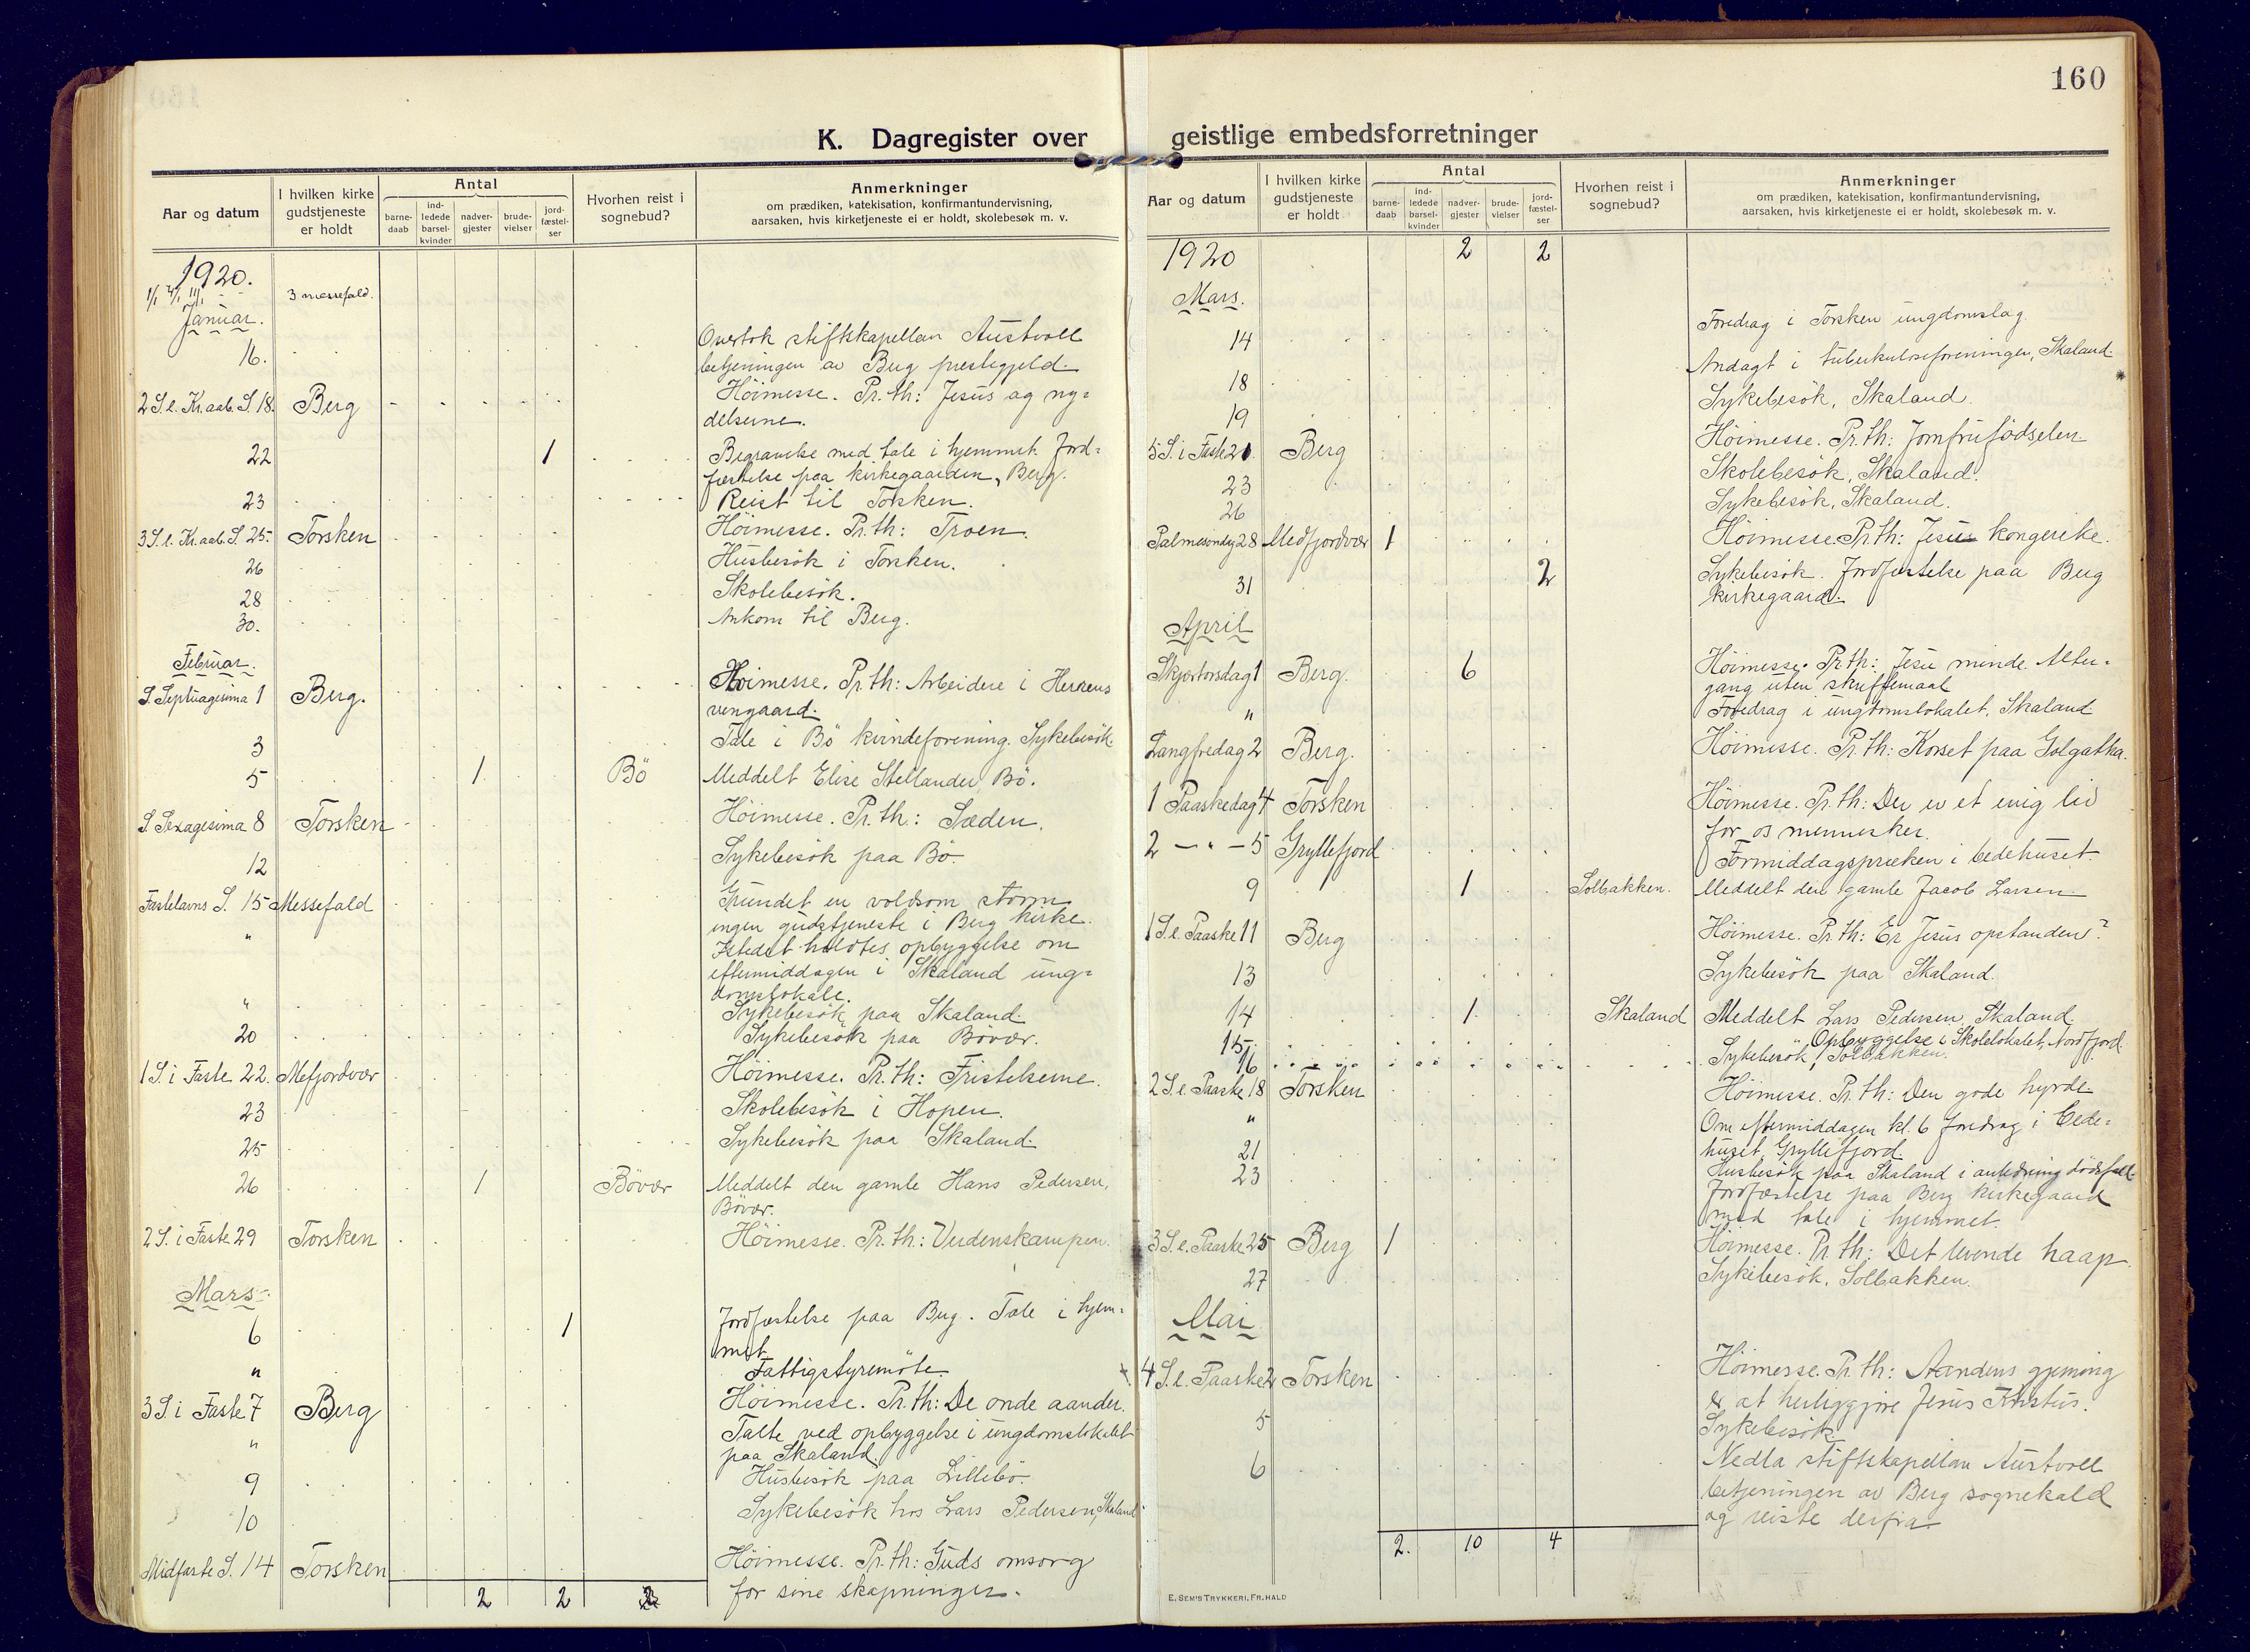 160
K. Dagregister over geistlige embedsforretninger
Aar og datum
I hvilken kirke gudstjeneste er holdt
Antal
barnedaab
indledede barselkvinder
nadvergjester
brudevielser
jordfæstelser
Hvorhen reist i sognebud?
Anmerkninger
om prædiken, katekisation, konfirmantundervisning,
aarsaken, hvis kirketjeneste ei er holdt, skolebesøk m. v.
1920.
3 messefald.
Januar.
16. Overtok stiftskapellan Austvoll
betjeningen av Berg prestegjeld.
2 S. e. Kr. aab. S. 18. Berg Höimesse. Pr. th: Jesus og ny=
delserne.
22 1 Begravelse med tale i hjemmet. Jord=
fæstelse paa kirkegaarden, Berg.
23 Reist til Torsken.
3 S. e. Kr. aab. S. 25. Torsken Höimesse. Pr. th: Troen.
26 Husbesök i Torsken.
28 Skolebesök.
30. Ankom til Berg.
Februar.
S. Septuagesima 1 Berg. Höimesse. Pr. th: Arbeidere i Herrens
vingaard.
3 Tale i Bö kvindeforening. Sykebesök
5 1 Bö Meddelt Elise Stellander, Bö.
S. Sexagesima 8 Torsken Höimesse. Pr. th.: Sæden.
12 Sykebesök paa Bö.
Fastelavns S. 15 Messefald Grundet en voldsom storm
ingen gudstjeneste i Berg kirke.
" Istedet holdtes opbyggelse om
eftermiddagen i Skaland ung=
domslokale.
" Sykebesök paa Skaland.
20 Sykebesök paa Bövær.
1 S. i Faste 22. Mefjordvær Höimesse. Pr. th: Fristelserne.
23 Skolebesök i Hopen.
25 Sykebesök paa Skaland.
26 1 Bövær Meddelt den gamle Hans Pedersen,
Bövær.
2 S. i Faste 29 Torsken Höimesse. Pr. th: Verdenskampen.
Mars.
6 1 Jordfæstelse paa Berg. Tale i hjem=
met.
" Fattigstyremöte.
3 S. i Faste 7 Berg Höimesse. Pr. th: De onde aander.
" Talte ved opbyggelse i ungdomslokalet
paa Skaland.
9 Husbesök paa Lillebö.
10 Sykebesök hos Lars Pedersen, Skaland
Midfaste S. 14 Torsken Höimesse. Pr. th: Guds omsorg
for sine skapninger.
2 2 2
Aar og datum
I hvilken kirke gudstjeneste er holdt
Antal
barnedaab
indledede barselkvinder
nadvergjester
brudevielser
jordfæstelser
Hvorhen reist i sognebud?
Anmerkninger
om prædiken, katekisation, konfirmantundervisning,
aarsaken, hvis kirketjeneste ei er holdt, skolebesøk m. v.
1920 2 2
Mars.
14 Foredrag i Torsken ungdomslag.
18 Andagt i tuberkuloseforeningen, Skaland.
19 Sykebesök, Skaland.
5 S. i Faste 21. Berg Höimesse. Pr. th: Jomfrufödselen
23 Skolebesök, Skaland.
26 Sykebesök, Skaland.
Palmesöndag 28 Medfjordvær 1 Höimesse. Pr. th: Jesus kongerike.
31 2 Sykebesök. Jordfæstelse paa Berg
kirkegaard.
April
Skjærtorsdag 1 Berg. 6 Höimesse. Pr. th: Jesu minde. Alter=
gang uten skriftemaal
" Foredrag i ungdomslokalet, Skaland
Langfredag 2 Berg. Höimesse. Pr. th: Korset paa Golgatha.
1 Paaskedag 4 Torsken Höimesse. Pr. th: Der er et evig liv
for os mennesker.
2 — " — 5 Gryllefjord Formiddagspræken i bedehuset.
9 1 Solbakken. Meddelt den gamle Jacob Larsen
1 S. e. Paaske 11 Berg Höimesse. Pr. th: Er Jesus opstanden?
13 Sykebesök paa Skaland.
14 1 Skaland Meddelt Lars Pedersen, Skaland.
15. Opbyggelse i Skolelokalet, Nordfjord.
16 Sykebesök, Solbakken.
2 S. e. Paaske 18 Torsken Höimesse. Pr. th: Den gode hyrde.
" Om eftermiddagen kl. 6 foredrag i bede=
huset, Gryllefjord.
21 Husbesök paa Skaland i anledning dödsfall
23 Jordfæstelse paa Berg kirkegaard
med tale i hjemmet.
3 S. e. Paaske 25 Berg 1 Höimesse. Pr. th: Det levende haap.
27 Sykebesök, Solbakken.
Mai
4 S. e. Paaske 2 Torsken Höimesse. Pr. th: Aandens gjerning
er at herliggjöre Jesus Kristus.
5 Sykebesök
6 Nedla stiftskapellan Austvoll
betjeningen av Berg sognekald
og reiste derfra.
2. 10 4
E. SEM'S TRYKKERI, FR.HALD